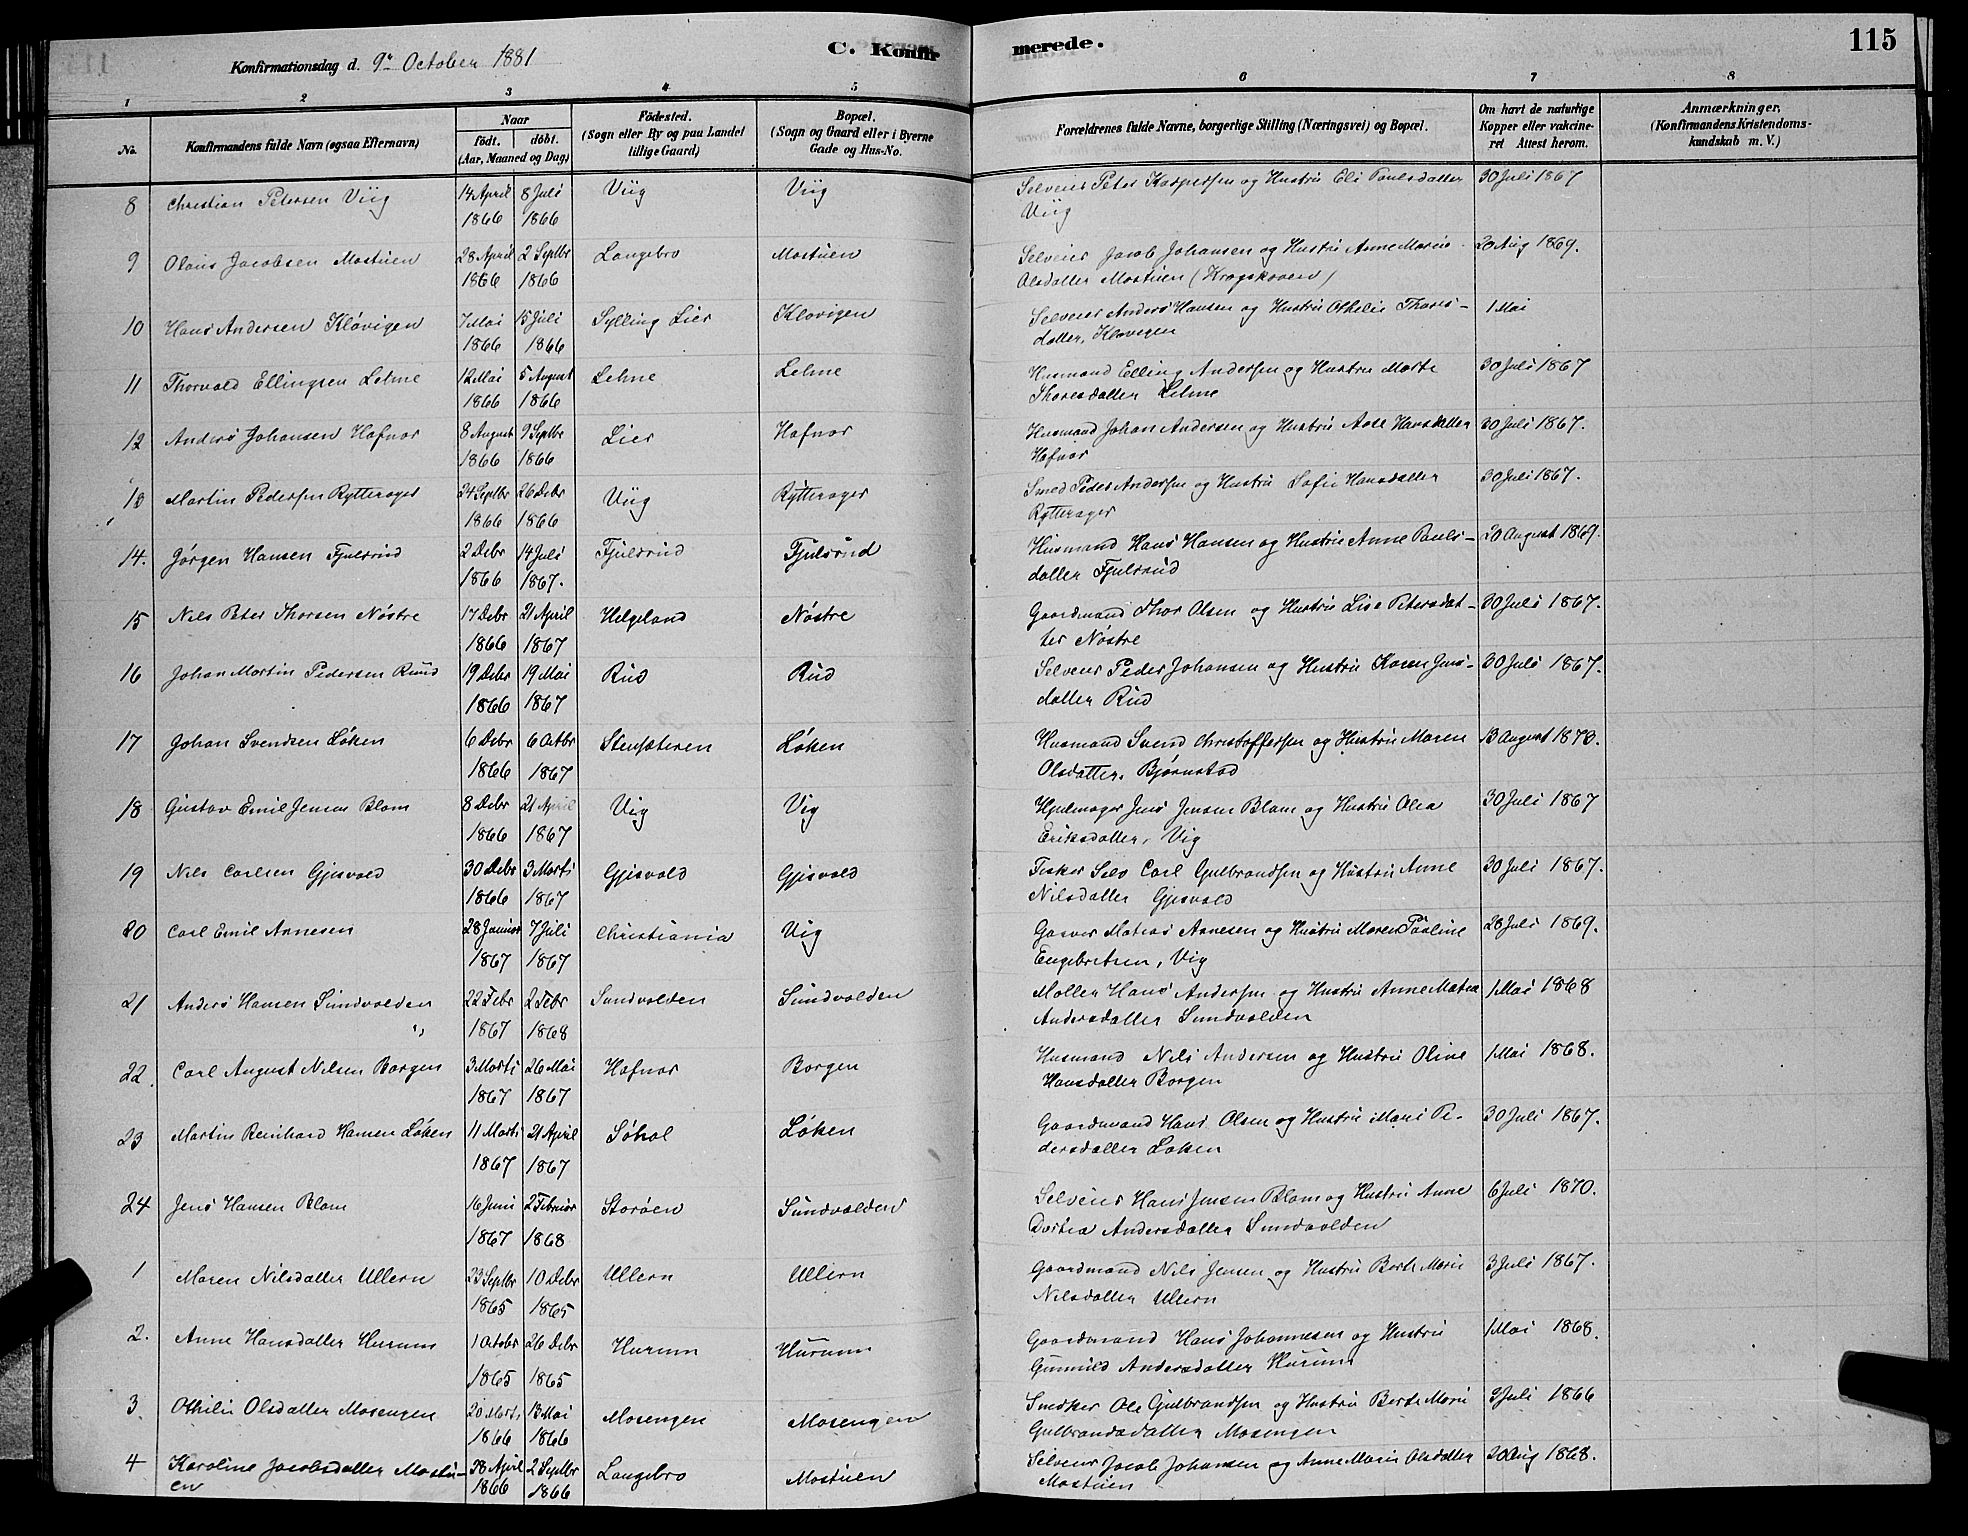 C. Konfirmerede.
115
Konfirmationsdag d. 9de October 1881
1 2 3 4 5 6 7 8
No.
Konfirmandens fulde Navn (ogsaa Efternavn)
Naar
født. døbt.
(Aar, Maaned og Dag)
Fødested.
(Sogn eller By og paa Landet
tillige Gaard)
Bopæl.
(Sogn og Gaard eller i Byerne
Gade og Hus-No.
Forældrenes fulde Navne, borgerlige Stilling (Næringsvei) og Bopæl.
Om havt de naturlige
Kopper eller vakcine-
ret Attest herom.
Anmærkninger.
(Konfirmandens Kristendoms-
kundskab m. V.)
8 Christian Petersen Viig 14 April 8 Juli Viig Viig Selveier Peter Kaspersen og Hustru Eli Paulsdatter 30 Juli 1867
1866 1866 Viig
9 Olaus Jacobsen Mostuen 28 April 2 Septbr Langebro Mostuen Selveier Jacob Johansen og Hustru Anne Marie 20 Aug 1869.
1866 1866 Olsdatter Mostuen (Krogskoven)
10 Hans Andersen Kløvigen 7 Mai 15 Juli Sylling Lier Klovigen Selveier Anders Hansen og Hustru Othelie Thores- 1 Mai
1866 1866 datter, Klovigen
11 Thorvald Ellingsen Lehne 12 Mai 5 August Lehne Lehne Husmand Elling Andersen og Hustru Marte 30 Juli 1867
1866 1866 Thoresdatter Lehne
12 Anders Johansen Hafnor 8 August 9 Septbr Lier Hafnor Husmand Johan Andersen og Hustru Aase Hansdatter 30 Juli 1867.
1866 1866 Hafnor
13 Martin Pedersen Rytterager 24 Septbr 26 Debr Viig Rytterager Smed Peder Andersen og Hustru Sofie Hansdatter 30 Juli 1867.
1866 1866 Rytterager
14. Jørgen Hansen Fjulsrud 2 Debr 14 Juli Fjulsrud Fjulsrud Husmand Hans Hansen og Hustru Anne Pauls- 20 August 1869.
1866 1867. datter Fjulsrud
15 Nils Peter Thorsen Nøstre 17 Debr 21 April Helgeland Nøstre Gaardmand Thor Olsen og Hustru Lise Petersdat- 30 Juli 1867.
1866 1867 ter Nøstre
16 Johan Martin Pedersen Ruud 19 Debr 19 Mai Rud Rud Selveier Peder Johansen og Hustru Karen Jens- 30 Juli 1867.
1866 1867 datter Rud
17 Johan Svendsen Løken 6 Debr 6 Octbr Stensæteren Løken Husmand Svend Christoffersen og Hustru Maren 13 August 1873.
1866 1867 Olsdatter, Bjørnstad
18 Gustav Emil Jensen Blom 8 Debr 21 April Vig Vig Hjulmager Jens Jensen Blom og Hustru Olea 30 Juli 1867
1866 1867 Eriksdatter, Vig
19 Nils Carlsen Gjesvold 30 Debr 3 Marts Gjesvold Gjesvold Fisker Selv Carl Gulbrandsen og Hustru Anne 30 Juli 1867.
1866 1867 Nilsdatter Gjesvold
20 Carl Emil Arnesen 28 Januar 7 Juli Christiania Vig Garver Matias Arnesen og Hustru Maren Pauline 28 Juli 1869.
1867 1867 Engebretsen, Vig
21 Anders Hansen Sundvolden 22 Febr 2 Febr Sundvolden Sundvolden Møller Hans Andersen og Hustru Anne Matea 1 Mai 1868
1867 1868 Andersdatter Sundvolden
22. Carl August Nilsen Borgen 3 Marts 26 Mai Hafnor Borgen Husmand Nils Andersen og Hustru Oline 1 Mai 1868.
1867 1867 Hansdatter Borgen
23 Martin Reinhard Hansen Løken 11 Marts 21 April Søhol Løken Gaardmand Hans Olsen og Hustru Mari Pe- 30 Juli 1867.
1867 1867 dersdatter Løken
24 Jens Hansen Blom 16 Juni 2 Februar Storøen Sundvolden Selveier Hans Jensen Blom og Hustru Anne 6 Juli 1870.
1867 1868 Dortea Andersdatter Sundvolden
1 Maren Nilsdatter Ullern 23 Septbr 10 Debr Ullern Ullern Gaardmand Nils Jensen og Hustru Berte Marie 3 Juli 1867.
1865 1865 Nilsdatter Ullern
2. Anne Hansdatter Hurum 1 Octobr 26 Debr Hurum Hurum Gaardmand Hans Johannesen og Hustru 1 Mai 1868.
1865 1865 Gunnild Andersdatter Hurum
3. Othilie Olsdatter Mosengen 20 Marts 13 Mai Mosengen Mosengen Snedker Ole Gulbrandsen og Hustru Berte Marie 9 Juli 1866
1866 1866 Gulbrandsdatter Mosengen
4 Karoline Jacobsdatter Mostu- 28 April 2 Septbr Langebro Mostuen Selveier Jacob Johansen og Anne Marie Olsdatter 20 Aug 1868.
en 1866 1866 Mostuen